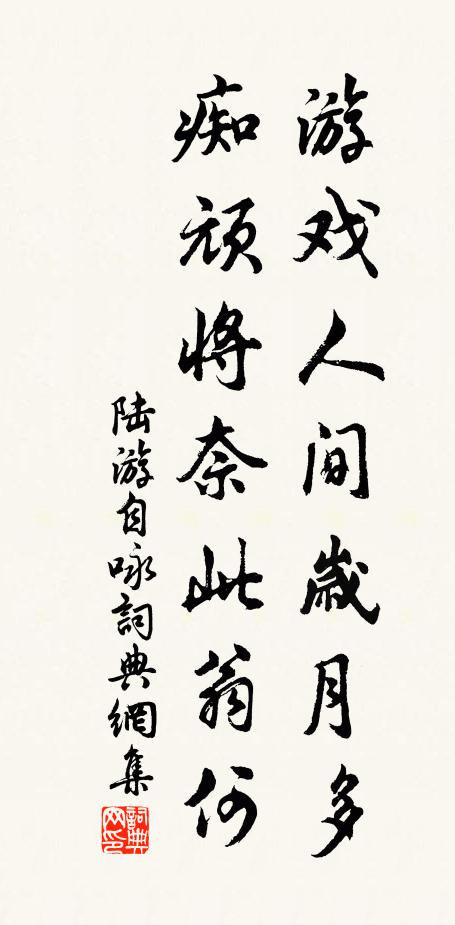 游戏人间歲月多
痴顽将奈此翁何
陆游自咏詞典網集
詞典网印